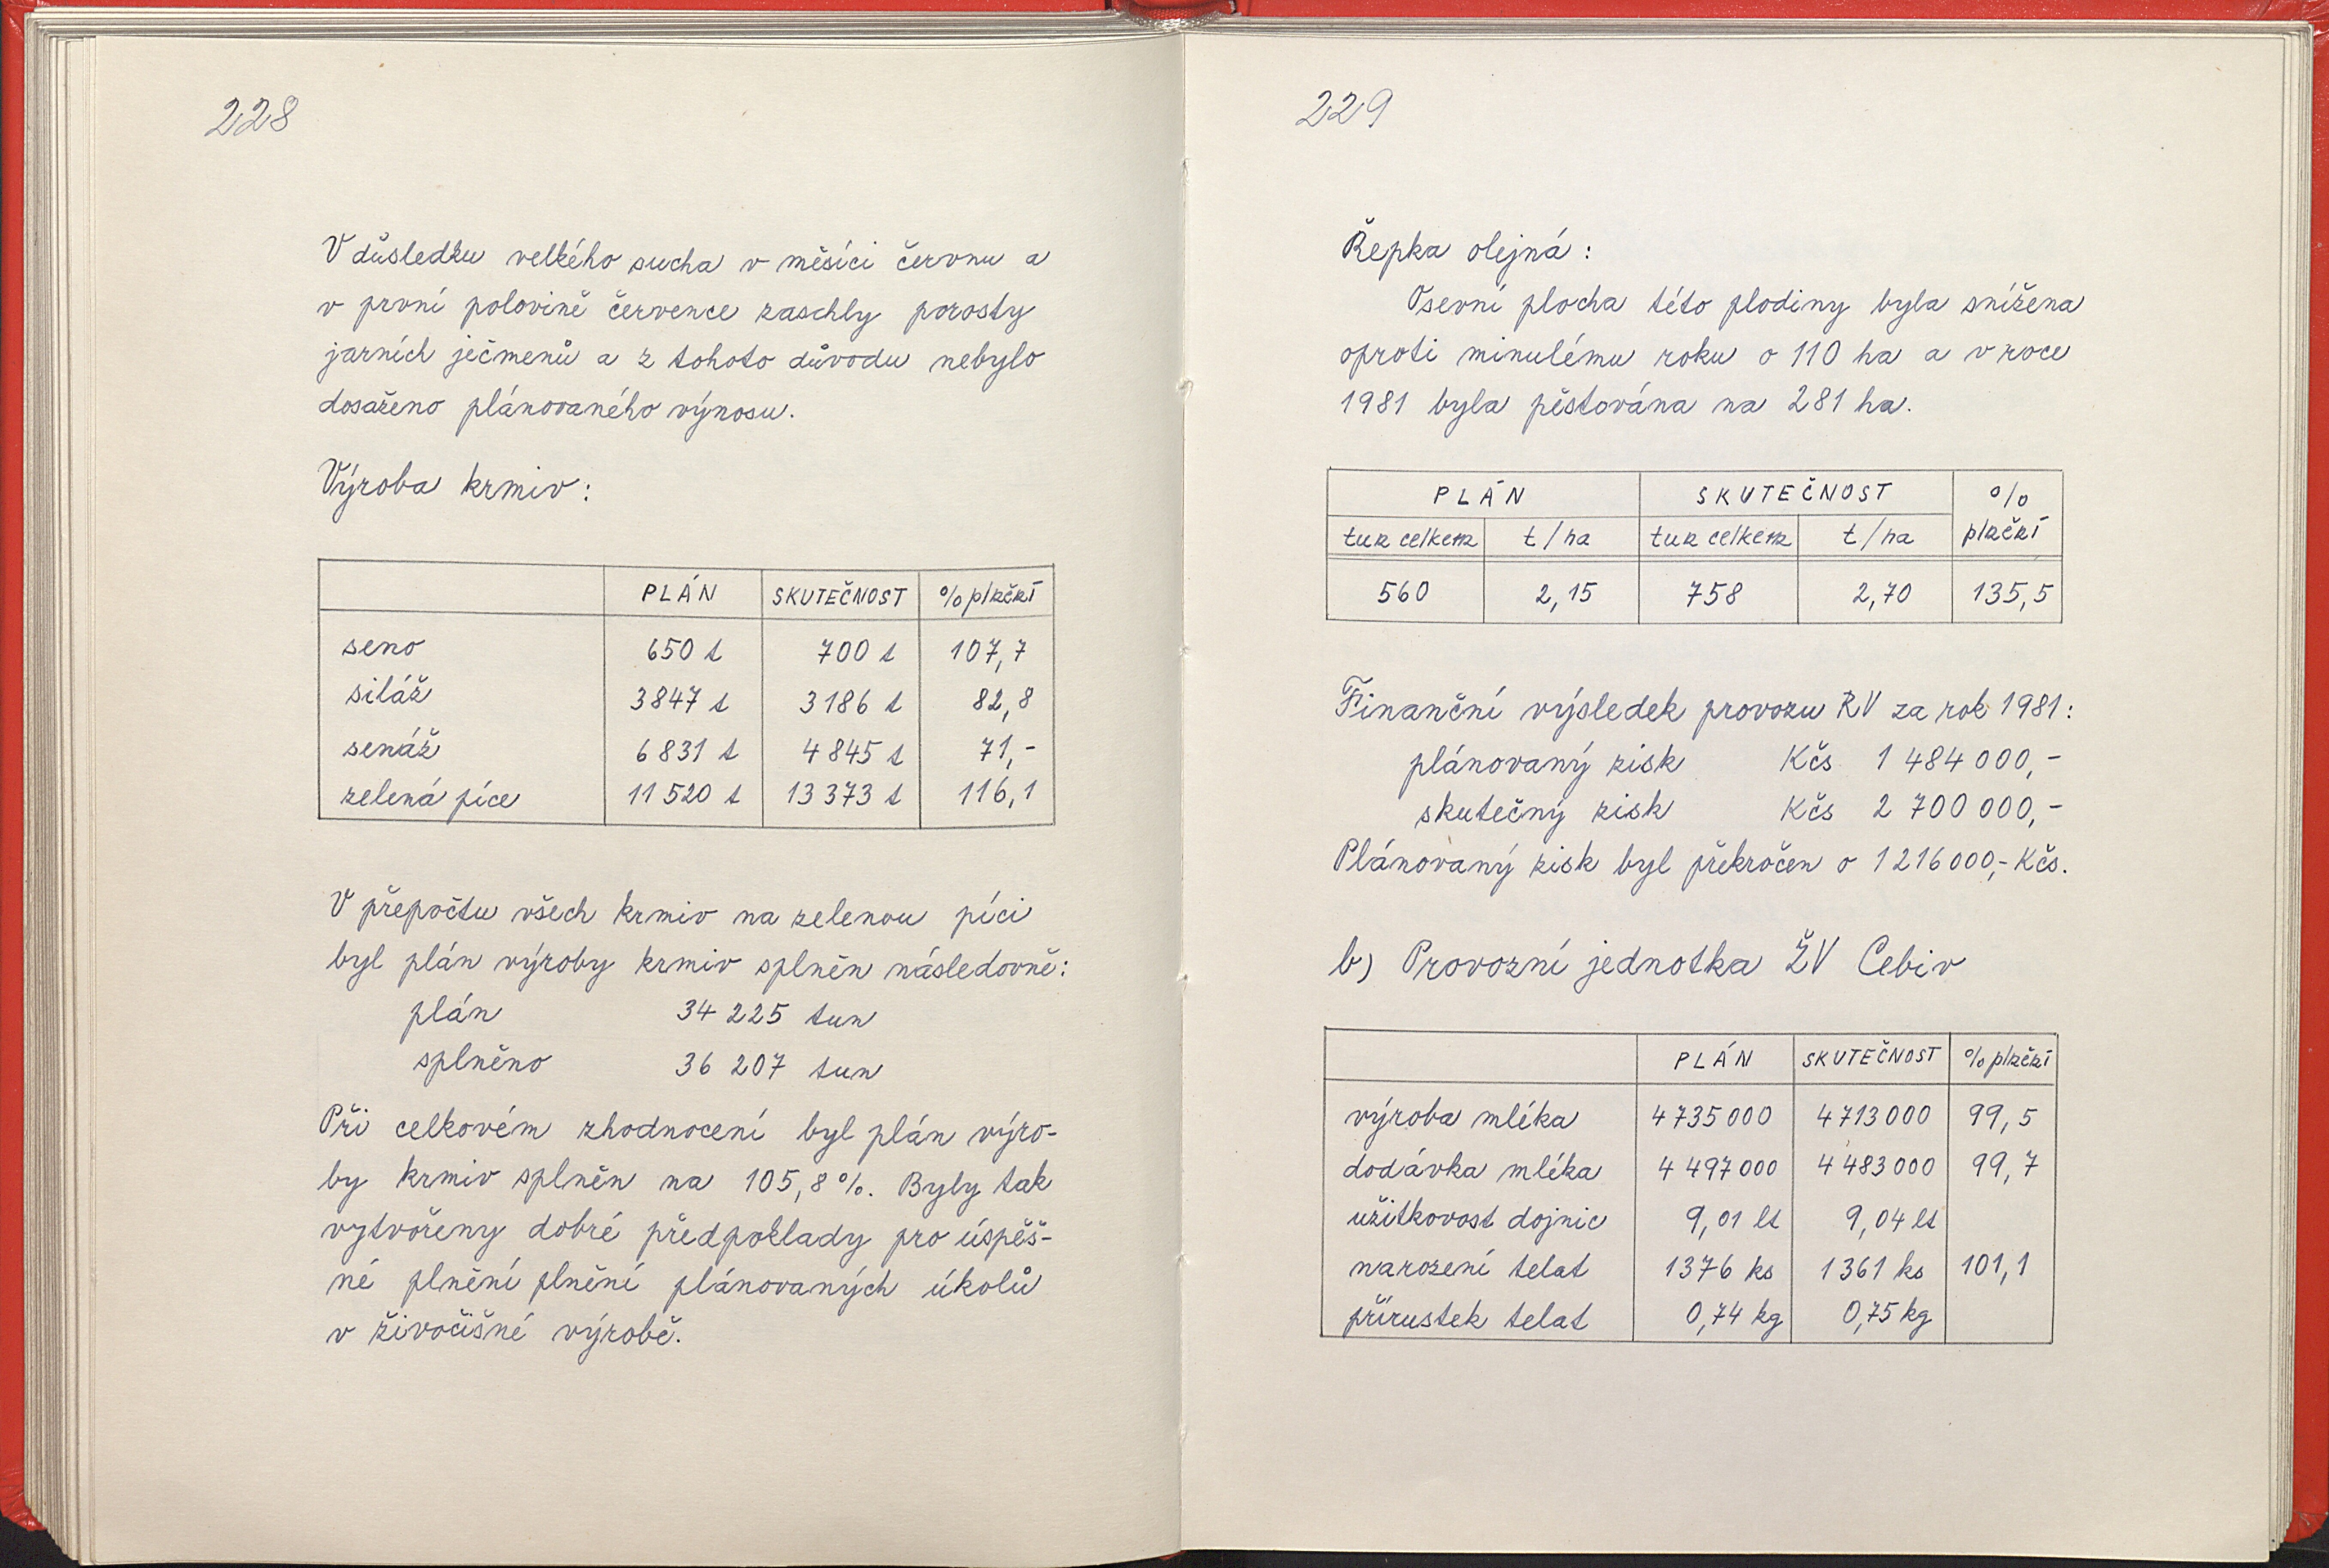 228
V důsledku velkého sucha v měsíci červnu a
v první polovině července zaschly porosty
jarních ječmenů a z tohoto důvodu nebylo
dosaženo plánovaného výnosu.
Výroba krmiv:
PLÁN SKUTEČNOST % plnění
seno 650 t 700 t 107,7
siláž 3847 t 3186 t 82,8
senáž 6831 t 4845 t 71,-
zelená píce 11520 t 13373 t 116,1
V přepočtu všech krmiv na zelenou píci
byl plán výroby krmiv splněn následovně:
plán 34 225 tun
splněno 36 207 tun
Při celkovém zhodnocení byl plán výro-
by krmiv splněn na 105,8 %. Byly tak
vytvořeny dobré předpoklady pro úspěš-
né plnění plnění plánovaných úkolů
v živočišné výrobě.
229
Řepka olejná:
Osevní plocha této plodiny byla snížena
oproti minulému roku o 110 ha a v roce
1981 byla pěstována na 281 ha.
PLÁN SKUTEČNOST %
tun celkem t/ha tun celkem t/ha plnění
560 2,15 758 2,70 135,5
Finanční výsledek provozu RV za rok 1981:
plánovaný zisk Kčs 1 484 000,-
skutečný zisk Kčs 2 700 000,-
Plánovaný zisk byl překročen o 1 216 000,- Kčs.
b) Provozní jednotka ŽV Cebiv
PLÁN SKUTEČNOST % plnění
výroba mléka 4 735 000 4 713 000 99,5
dodávka mléka 4 497 000 4 483 000 99,7
užitkovost dojnic 9,01 lt 9,04 lt
narození telat 1376 ks 1361 ks 101,1
přírustek telat 0,74 kg 0,75 kg